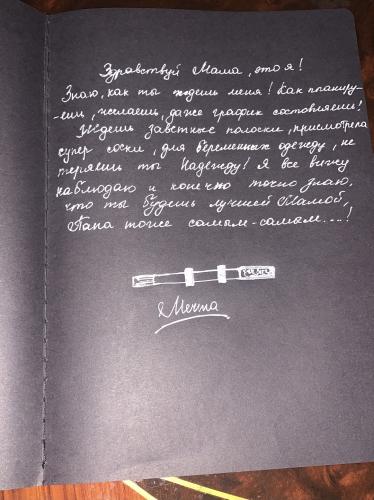 Здравствуй Мама, это я!
Знаю, как ты ждешь меня! Как планиру-
ешь, желаешь, даже график составляешь!
Ждешь заветные полоски, присмотрела
супер соски, для беременных одежду, не
теряешь ты Надежду! Я все вижу
наблюдаю и конечно точно знаю,
что ты будешь лучшей Мамой,
Папа тоже самым-самым....!
Мечта